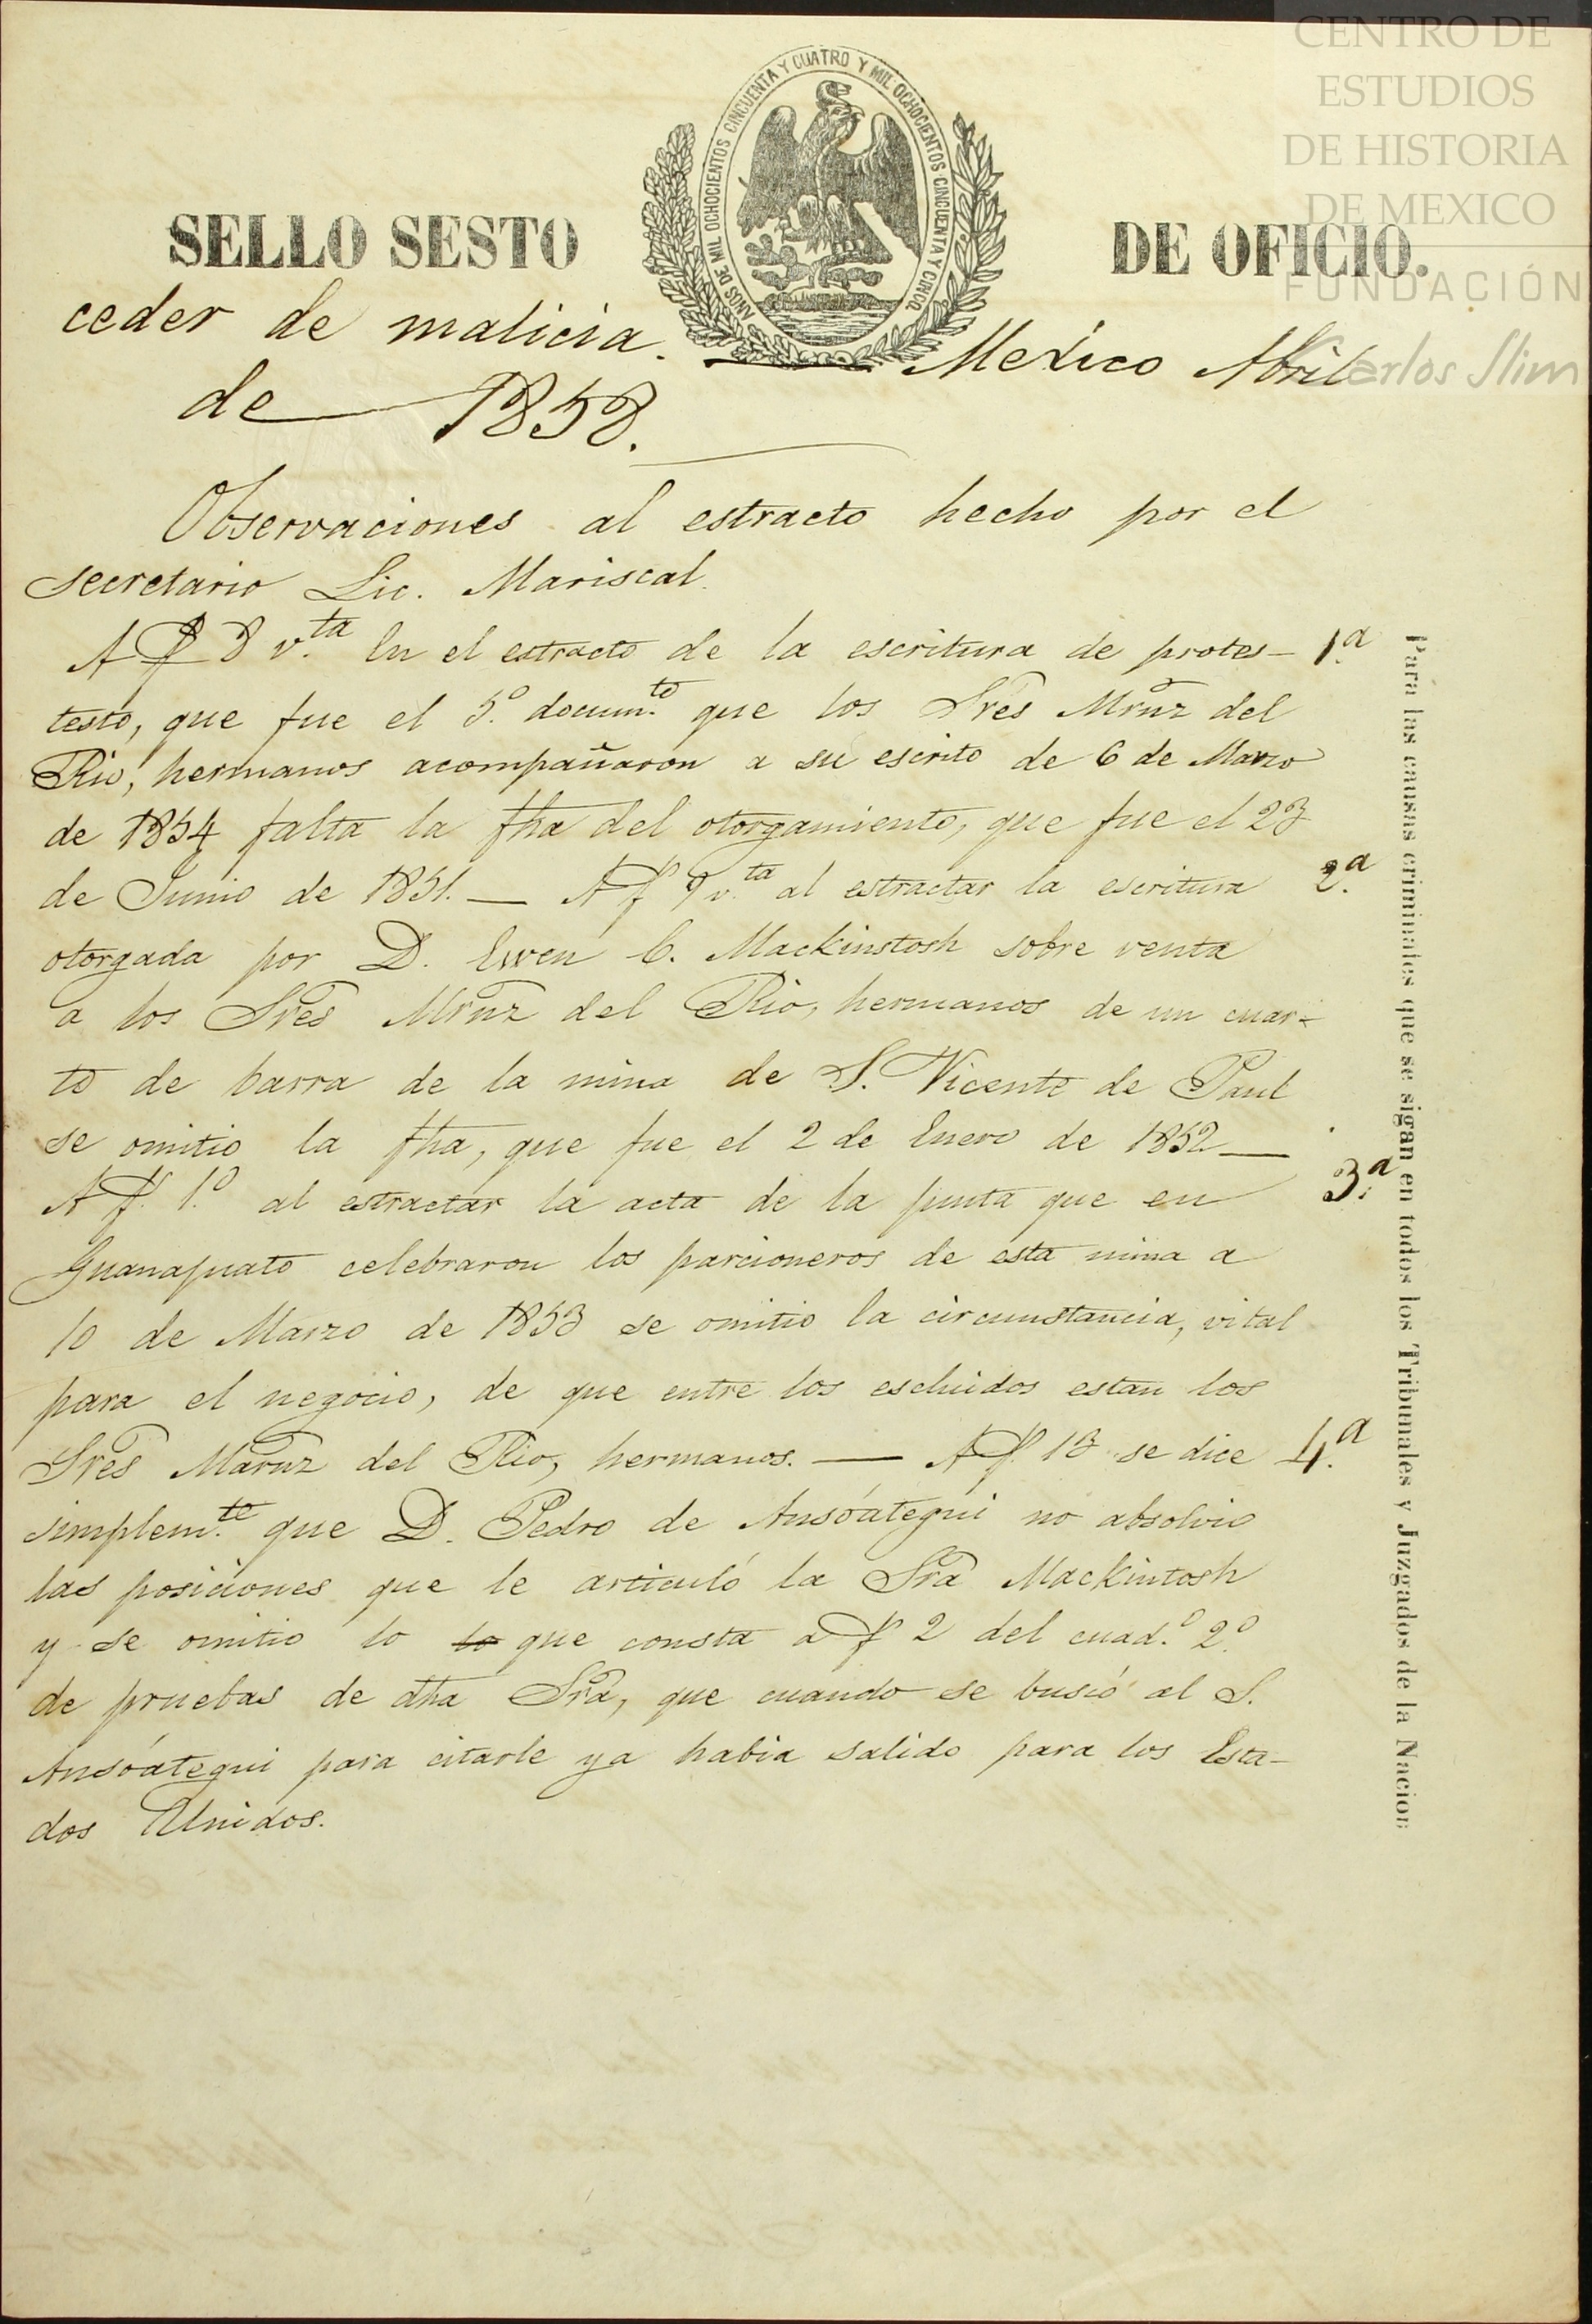 CENTRO DE
ESTUDIOS
DE HISTORIA
DE MEXICO
FUNDACIÓN
Carlos Slim
AÑOS DE MIL OCHOCIENTOS CINCUENTA Y CUATRO Y MIL OCHOCIENTOS CINCUENTA Y CINCO.
SELLO SESTO DE OFICIO.
ceder de malicia. — Mexico Abril
de 1858.
Observaciones al estracto hecho por el
secretario Lic. Mariscal.
A f 8 v.ta En el estracto de la escritura de protes- 1.a
testo, que fue el 5.o docum.to que los Sres Mrnz del
Rio, hermanos acompañaron a su escrito de 6 de Marzo
de 1854 falta la fha del otorgamiento, que fue el 23
de Junio de 1851. — A f 9 v.ta al estractar la escritura 2.a
otorgada por D. Ewen C. Mackinstosh sobre venta
a los Sres Mrnz del Rio, hermanos de un cuar-
to de barra de la mina de S. Vicente de Paul
se omitio la fha, que fue el 2 de Enero de 1852 —
A f. 1.o al estractar la acta de la junta que en 3.a
Guanajuato celebraron los parcioneros de esta mina a
10 de Marzo de 1853 se omitio la circunstancia, vital
para el negocio, de que entre los escluidos estan los
Sres Marnz del Rio, hermanos. — A f. 13 se dice 4.a
simplem.te que D. Pedro de Ansóategui no absolvio
las posiciones que le articuló la Sra Mackintosh
y se omitio lo lo que consta a f 2 del cuad.o 2.o
de pruebas de dha Sra, que cuando se buscó al S.
Ansóategui para citarle ya habia salido para los Esta-
dos Unidos.
Para las causas criminales que se sigan en todos los Tribunales y Juzgados de la Nacion